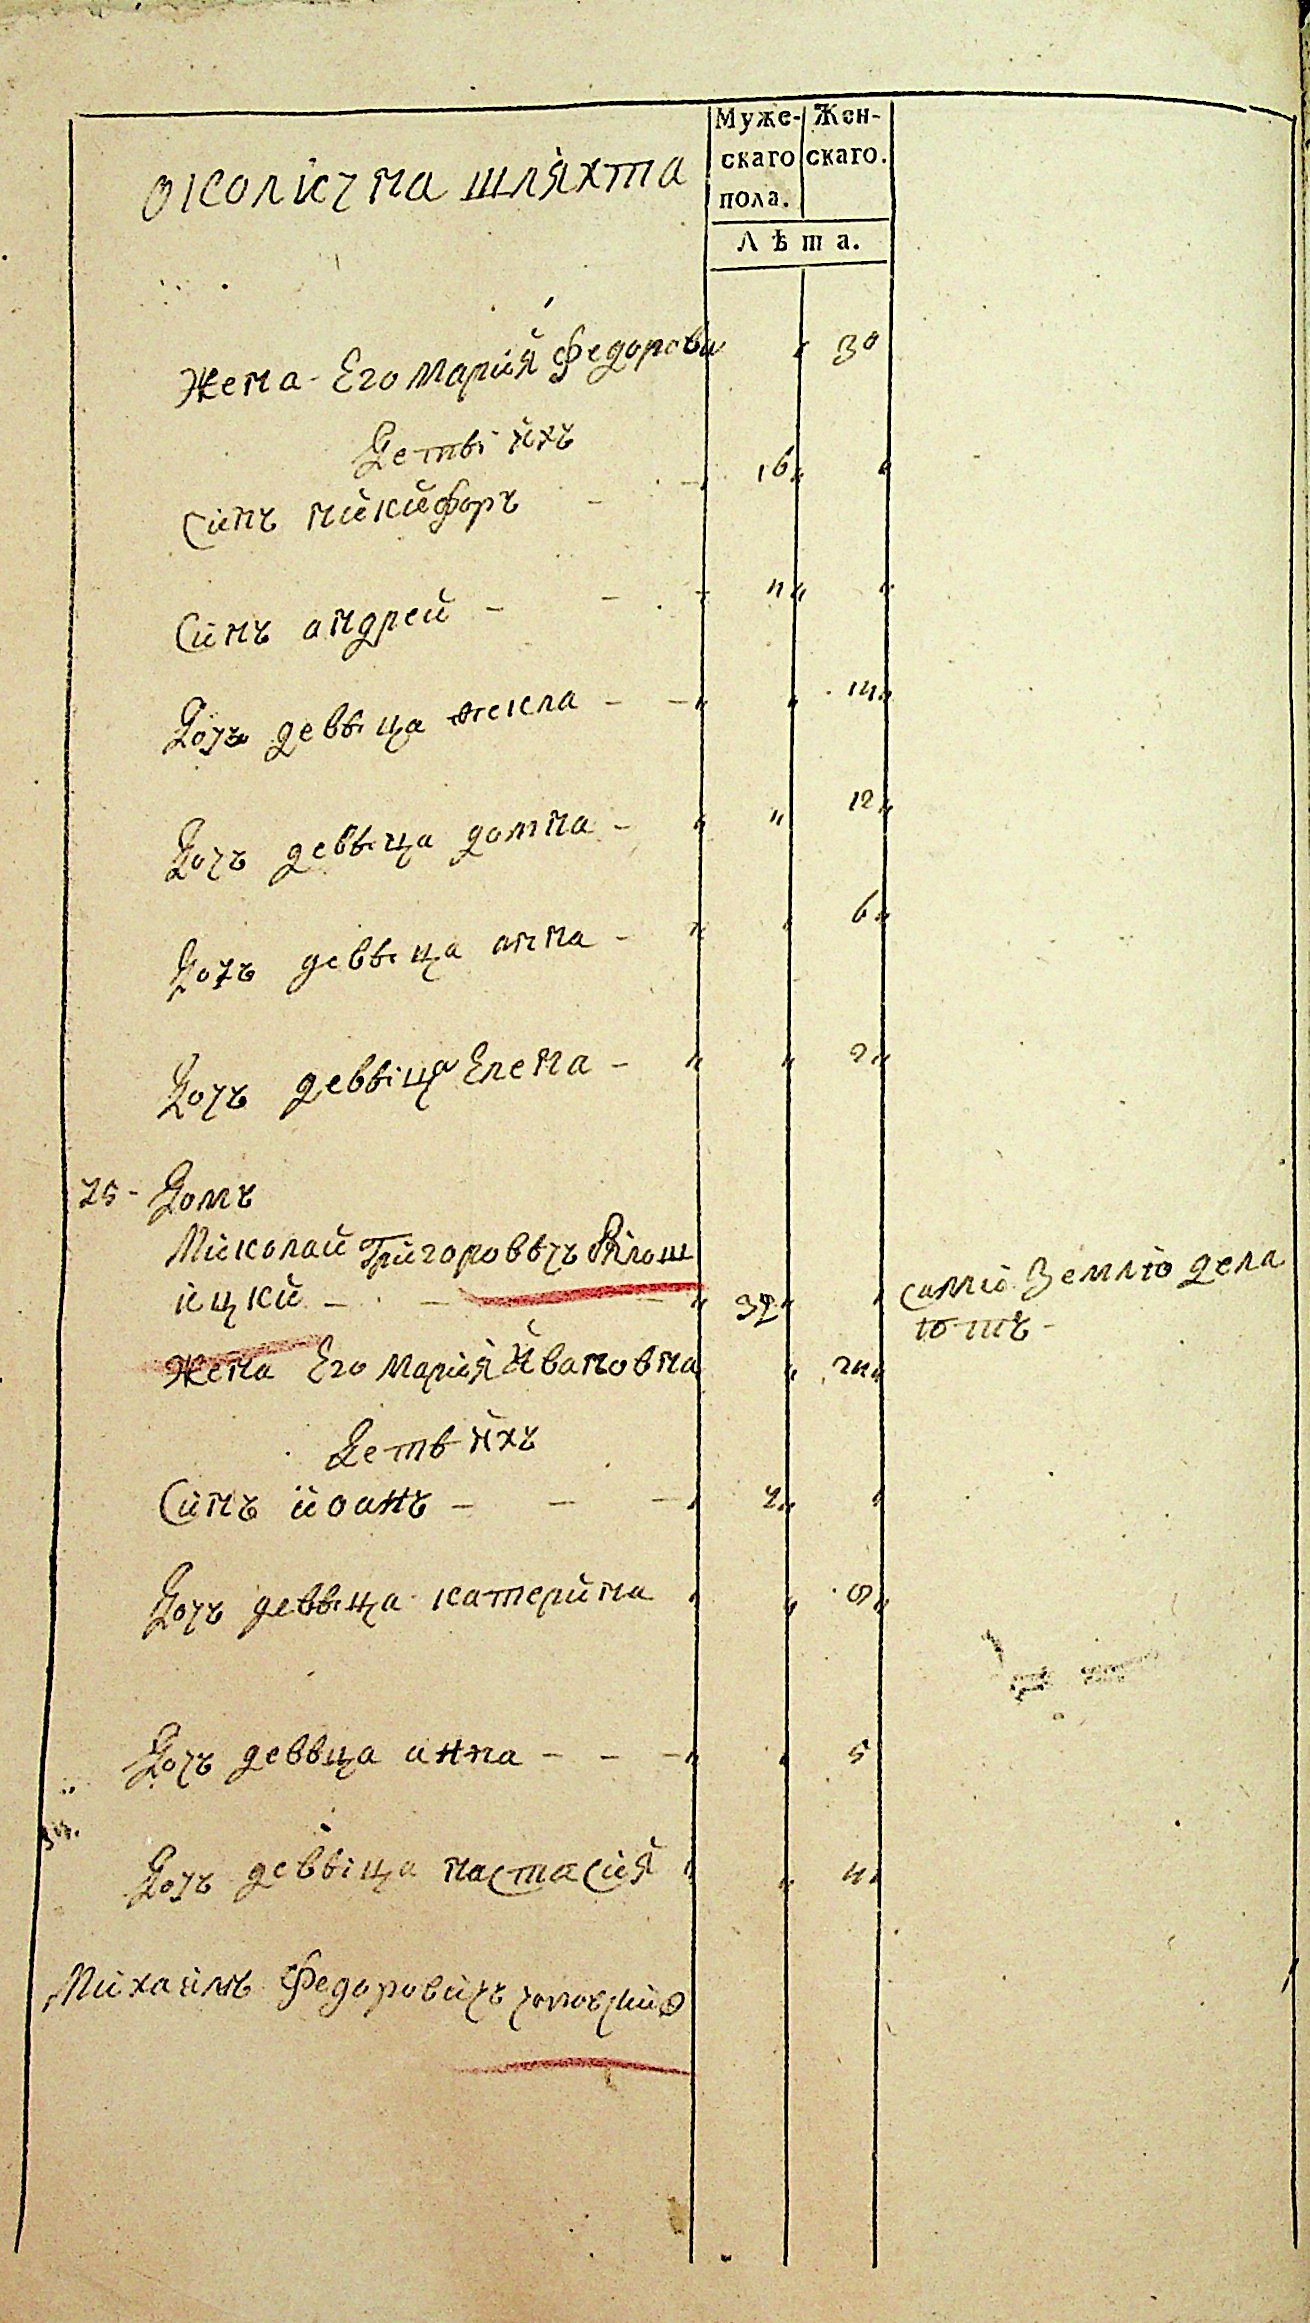 околична шляхта
Муже-
скаго
пола.
Жен-
скаго.
Лѣта.
Жена Его Марія Федорова 30
Детві ихъ
Синъ никифоръ 16
Синъ андрей 11
Дочъ деввіца 14
Дочъ деввіца домна 12
Дочъ деввіца анна 6
Дочъ деввіца Елена 2
25 - Домъ
Миколай Григороввчъ
ицкй
самю Землю дела
ютъ -
Жена Его Марія Ивановна
Детв ихъ
Синъ иоанъ
Дочъ деввіца катерина
Дочъ деввца анна 5
Дочъ деввіца настасия
Михаилъ Федоровичъ